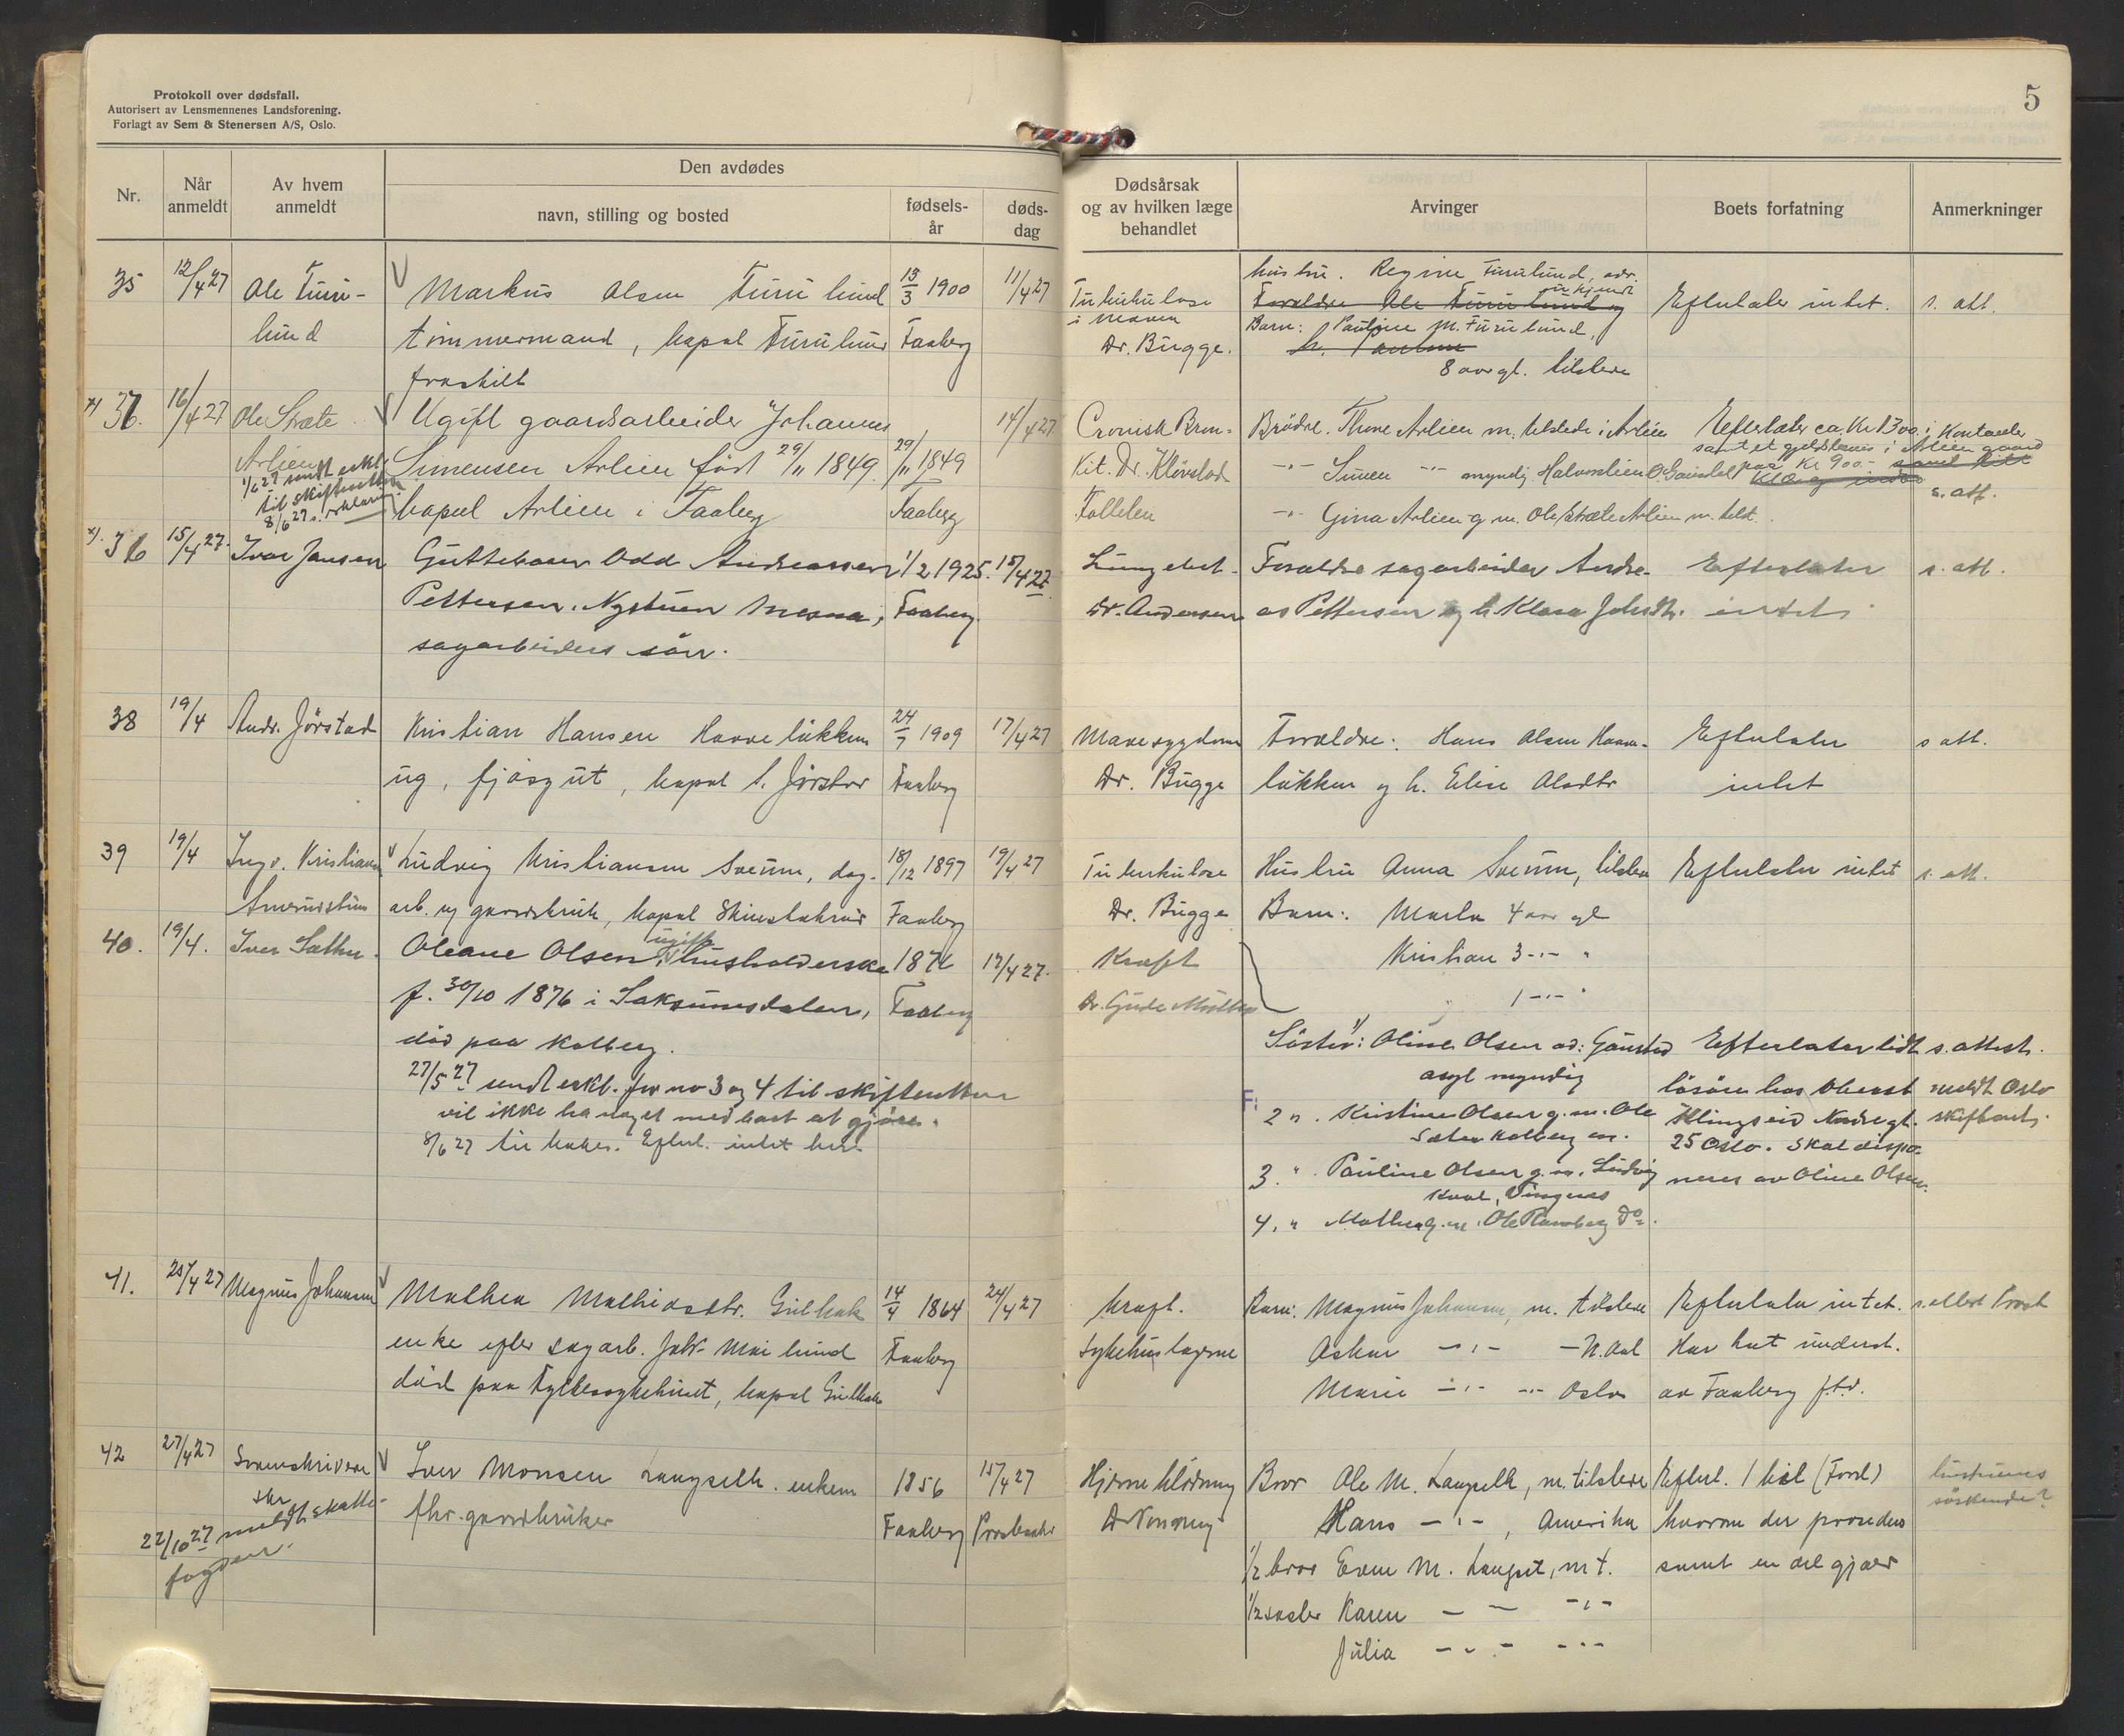 Protokoll over dødsfall.
Autorisert av Lensmennenes Landsforening.
Forlagt av Sem & Stenersen A/S, Oslo.
5
Nr.
Når anmeldt
Av hvem anmeldt
Den avdødes
navn, stilling og bosted
fødsels-år
døds-dag
Dødsårsak og av hvilken læge behandlet
Arvinger
Boets forfatning
Anmerkninger
35 12/4 27 Ole Furu- Markus Olsen Furulund 13/3 1900 11/4 27 Tuberkulose hustru. Regine Furulund, adr. ukjendt Efterlater intet. s. att.
lund tømmermand, bopæl Furulund Faaberg i maven Forældre Ole Furulund og
Barn: Pauline M. Furulund,
Dr. Bugge.
fraskilt 8 aar gl. tilstede
x) 37. 16/4 27 Ole Stræte Ugift gaardsarbeider Johannes 14/4 27 Cronisk Bron- Brødre. Thore Arlien m. tilstede i Arlien Efterlater ca. Kr 1300 i Kontanter
samt et gjeldsbevis i Arlien gaard
Arlien Simensen Arlien født 29/11 1849. 29/11 1849 kit. Dr. Kløvstad -"- Simen -"- myndig. paa Kr 900.-
1/6 27 sendt erkl.
til skifteretten
8/6 27 s. erklæring.
bopæl Arlien i Faaberg Faaberg Follebu -"- Gina Arlien g. m. Ole Stræte Arlien m. tilst. s. att.
x) 36 15/4 27. Ivar Jansen Guttebarn Odd Andreassen 1/2 1925. 15/4 27 Lungebet. Forældre sagarbeider Andre- Efterlater s. att.
Pettersen. Nystuen Mesna, Faaberg. Dr. Andersen as Pettersen og h. Klara Johsdtr. intet
sagarbeiders søn.
38 19/4 Andr. Jørstad Kristian Hansen Haaveløkken 24/7 1909 17/4 27 Mavesygdom Forældre: Hans Olsen Haave- Efterlater s att.
ug, fjøsgut, bopæl Faaberg Dr. Bugge løkken og h. Elise Olsdtr intet
39 19/4 Ingv. Kristiansen Ludvig Kristiansen Sveum, dag- 18/12 1897 19/4 27 Tuberkulose Hustru Anna Sveum, tilstede Efterlater intet s. att.
arb. og gaardbruk, bopæl Faaberg Dr. Bugge Barn: Marta 4 aar gl
40. 19/4. Iver Sæther. Oleane Olsen, ugift husholderske 1876 17/4 27. Kræft Kristian 3 -"- "
f. 30/10 1876 i Saksumsdalen, Faaberg Dr. Gude 1 -"- "
død paa Kolberg. Søster: 1) Oline Olsen ad: Gausdal Efterlater lidt s. attest.
27/5 27 sendt erkl. for no 3 og 4 til skifteretten asyl myndig løsøre hos Oberst meldt Oslo
vil ikke ha noget med boet at gjøre. 2 ". Kristine Olsen g. m. Ole Klingseid skifteret.
8/6 27 Efterl. intet Sæter Kolberg m. 25 Oslo. Skal dispo-
3. " Pauline Olsen g. m. Ludvig neres av Oline Olsen.
Vingnes
4. " Mathea g. m. Ole Ramberg Do.
41. 25/4 27 Magnus Johansen Mathea Mathiasdtr. 14/4 1864 24/4 27 kræft. Barn: Magnus Johansen, m. tilstede Efterlater intet. s. attest
enke efter sagarb. Joh. Mælumd Faaberg Sykehuslægene Oskar -"- -N. Aal Har hat underst.
død paa Fylkessykehuset, bopæl Marie -"- -"- Oslo av Faaberg f.t.d.
42 27/4 27 Sorenskriveren Iver Monsen enkem. 1856 15/4 27 Hjerneblødning Bror Ole M. m. tilstede Efterl. 1 bil (Ford)
fhv. gaardbruker Faaberg Dr. Hans -"-, Amerika hvorom der procederes
22/10 27 meldt skatte-
fogden.
1/2 bror Even M. m t. samt en del gjæld
1/2 søster Karen - - -"-
Julia -"- -"-
hustruens
søskende?